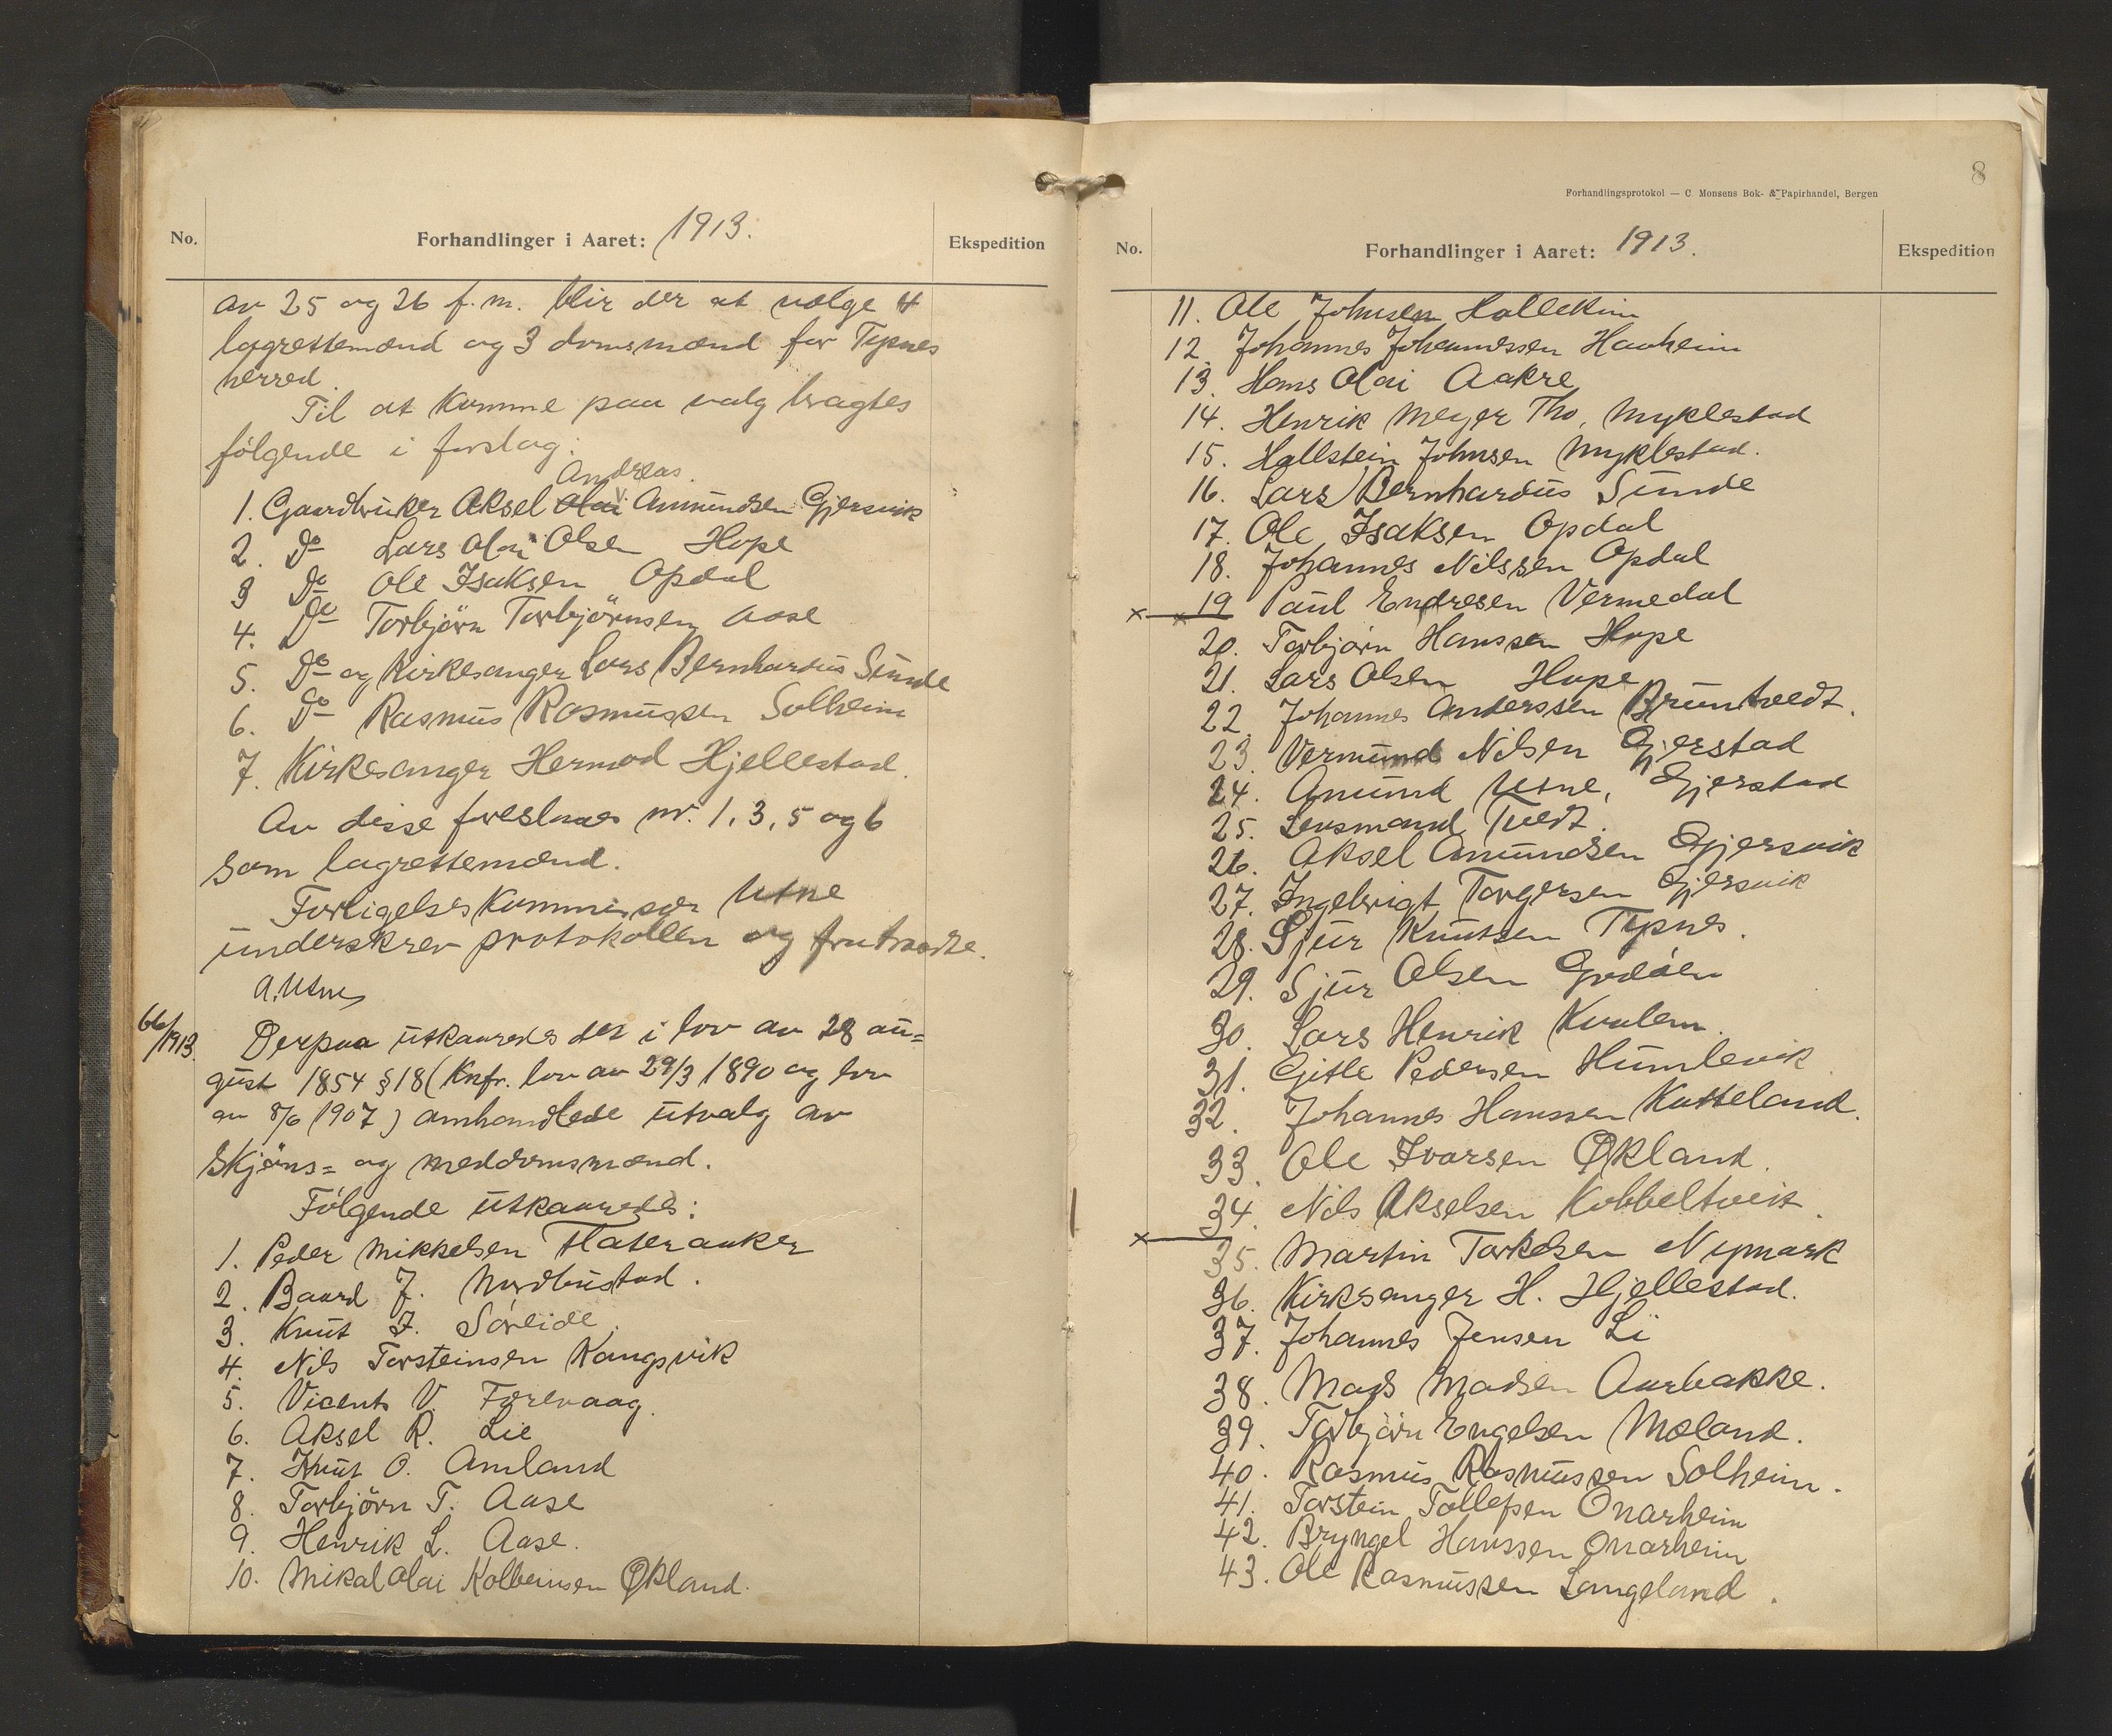 No.
Forhandlinger i Aaret: 1913.
Ekspedition
av 25 og 26 f. m. blir der at vælge 4
lagrettemænd og 3 domsmænd for Tysnes
herred.
Til at komme paa valg bragtes
følgende i forslag:
Andreas.
1. Gaardbruker Aksel Olai Amundsen Gjersvik
2. Do Lars Olai Olsen Hope
3 Do Ole Isaksen Opdal
4. Do Torbjörn Torbjörnsen Aase
5. Do og Kirkesanger Lars Bernhardus Sunde
6. Do Rasmus Rasmussen Solheim
7. Kirkesanger Hermod Hjellestad.
Av disse foreslaaes nr. 1, 3, 5 og 6
som lagrettemænd.
Forligelseskommissær Utne
underskrev protokollen og fratraadte.
A. Utne
66/1913.
Derpaa utkaaredes det i lov av 28 au=
gust 1854 § 18 (Knfr. lov av 29/3 1890 og lov
av 8/6 1907) omhandlede utvalg av
Skjøns= og meddomsmænd.
Følgende utkaaredes:
1. Peder Mikkelsen Flateraaker
2. Baard J. Nordbustad.
3. Knut I. Söreide.
4. Nils Torsteinsen Kongsvik
5. Vicents V. Færevaag.
6. Aksel R. Lie
7. Knut O. Amland
8. Torbjörn T. Aase
9. Henrik L. Aase.
10. Mikal Olai Kolbeinsen Økland.
8
Forhandlingsprotokol — C. Monsens Bok- & Papirhandel, Bergen
No.
Forhandlinger i Aaret: 1913.
Ekspedition
11. Ole Johnsen Hallekim
12. Johannes Johannessen Hauheim
13. Hans Olai Aakre
14. Henrik Meyer Tho, Myklestad
15. Hallstein Johnsen Myklestad.
16. Lars Bernhardus Sunde
17. Ole Isaksen Opdal
18. Johannes Nilssen Opdal
x x 19 Paul Endresen Vermedal
20. Torbjørn Hanssen Hope
21. Lars Olsen Hope
22. Johannes Anderssen Bruntvedt.
23. Vermund Nilsen Gjerstad
24. Amund Utne, Gjerstad
25. Lensmand Tvedt.
26. Aksel Amundsen Gjersvik
27. Ingebrigt Torgersen Gjersvik
28. Sjur Knutsen Tysnes.
29. Sjur Olsen Godøen
30. Lars Henrik Kvalem.
31. Gitle Pedersen Humlevik
32. Johannes Hanssen Katteland.
33. Ole Ivarsen Økland.
34. Nils Akselsen Kobbeltveit.
x
35. Martin Torkelsen Nymark
36. Kirkesanger H. Hjellestad.
37. Johannes Jensen Li
38. Mads Madsen Aarbakke.
39. Torbjørn Engelsen Mæland.
40. Rasmus Rasmussen Solheim.
41. Torstein Tollefsen Onarheim
42. Bryngel Hanssen Onarheim
43. Ole Rasmussen Langeland.